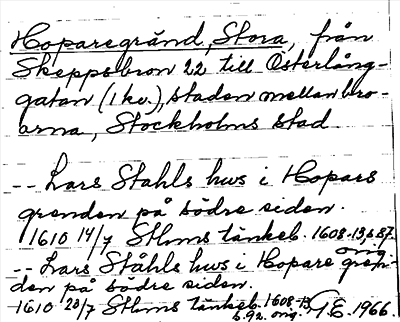 Hoparegränd, Stora, från
Skeppsbron 22 till Österlång-
gatan (1 kv.), staden mellan bro-
arna, Stockholms stad
-- Lars Stahls hws i Hopars
grenden på södre siden.
1610 14/7 Sthms tänkeb. 1608-13, s. 87.
orig.
-- Lars Ståhls hws i Hopare gren-
den på södre siden.
1610 28/7 Sthms tänkeb. 1608-13
s. 92. orig. G.E. 1966.